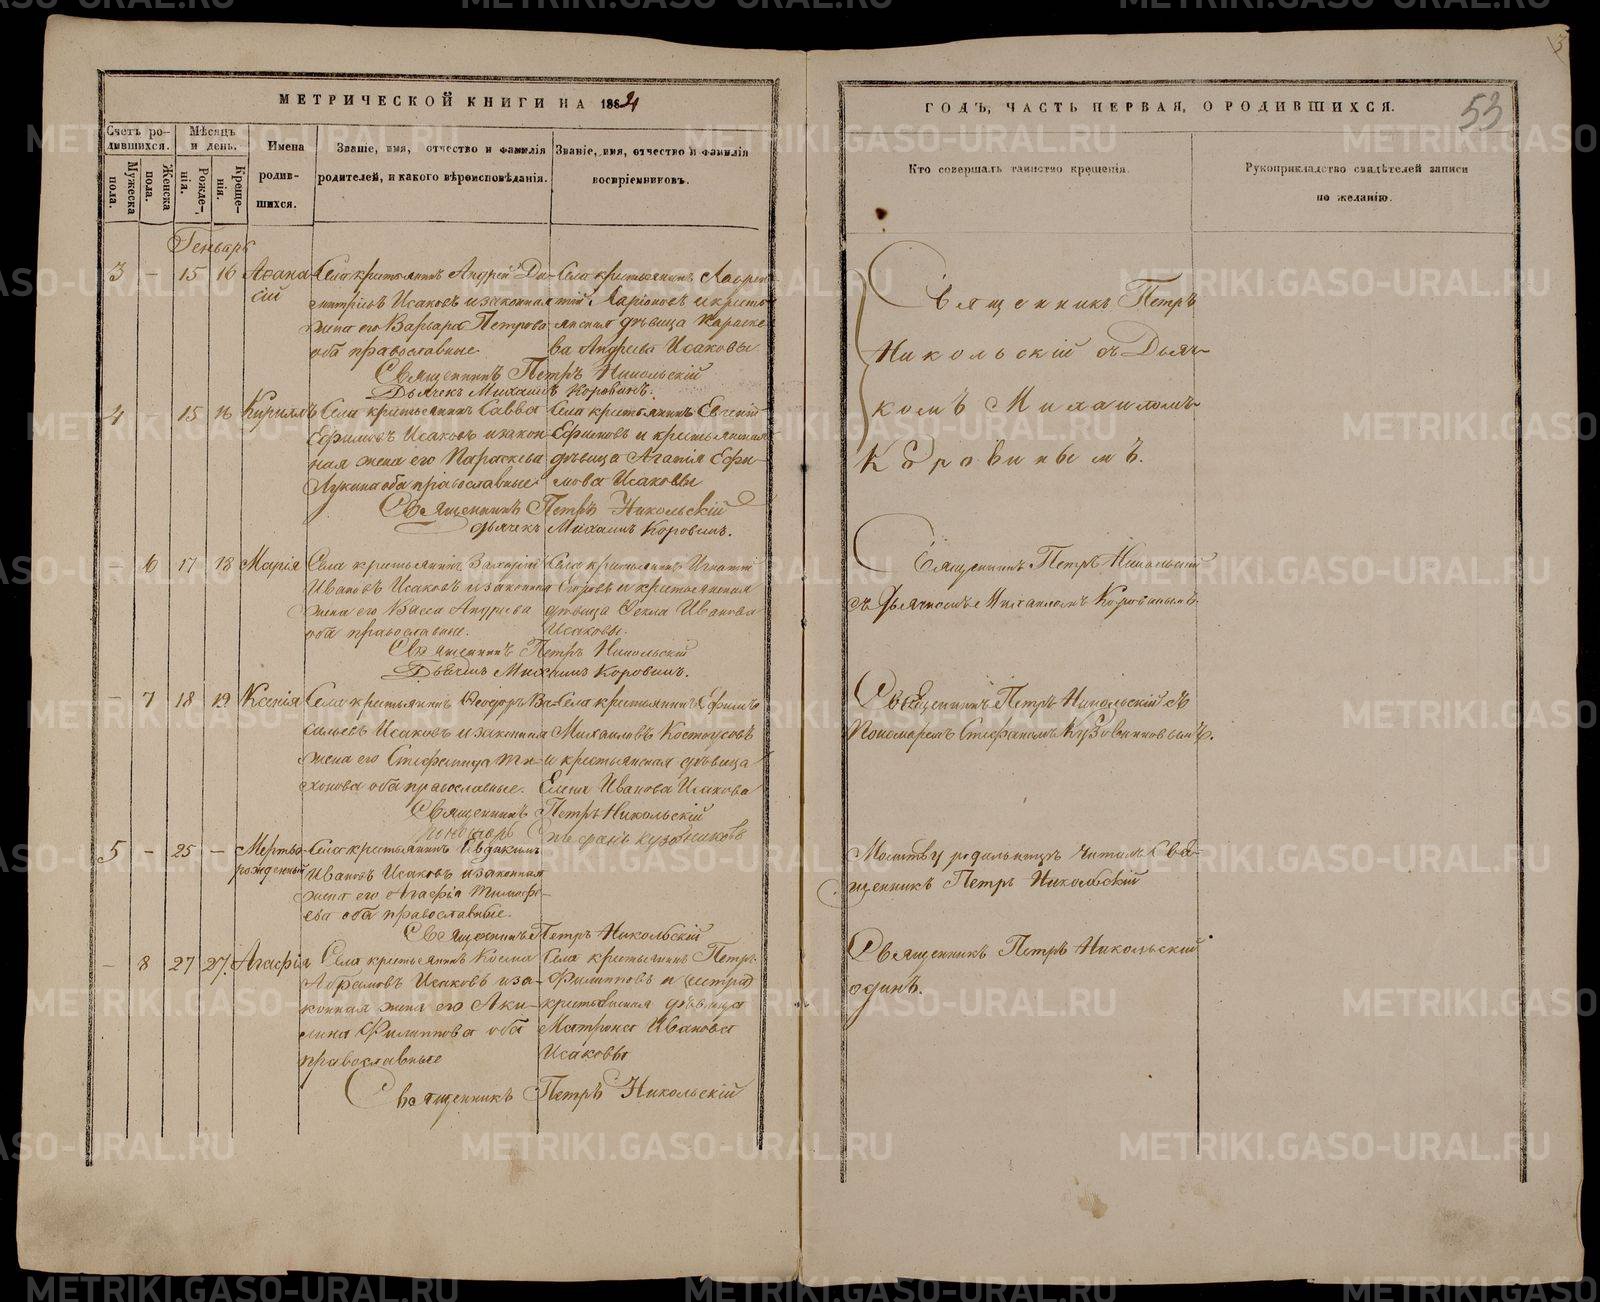 МЕТРИЧЕСКОЙ КНИГИ НА 1884
Счетъ родившихся.
Мѣсяцъ и день.
Мужеска пола.
Женска пола.
Рожденія.
Крещенія.
Имена родившихся.
Званіе, имя, отчество и фамилія родителей, и какого вѣроисповѣданія.
Званіе, имя, отчество и фамилія воспріемниковъ.
Генварь
3 – 15 16 Аѳанасій
Села крестьянинъ Андрей Димитріевъ Исаковъ и законная
жена его Варвара Петрова
оба православные.
Села крестьянинъ
Ларіоновъ и крестьянская дѣвица Параскева Андреева Исаковы.
Священникъ Петръ Никольскій
Дьячекъ Михаилъ Коровинъ.
4 – 15 16 Кириллъ
Села крестьянинъ Савва
Ефимовъ Исаковъ и законная жена его Параскева
Лукина оба православные.
Села крестьянинъ Евгеній
Ефимовъ и крестьянская
дѣвица Агапія Ефимова Исаковы
Священникъ Петръ Никольскій
дьячекъ Михаилъ Коровинъ.
– 6 17 18 Марія
Села крестьянинъ Захарій
Ивановъ Исаковъ и законная
жена его Васса Андреева
оба православные.
Села крестьянинъ Игнатій
Егоровъ и крестьянская
дѣвица Ѳекла Иванова
Исаковы.
Священникъ Петръ Никольскій
Дьячекъ Михаилъ Коровинъ.
– 7 18 19 Ксенія
Села крестьянинъ Ѳеодоръ Васильевъ Исаковъ и законная
жена его Стефанида Тихонова оба православные.
Села крестьянинъ Ефимъ
Михаиловъ Костоусовъ
и крестьянская дѣвица
Елена Иванова Исакова
Священникъ Петръ Никольскій
Пономарь Стефанъ Кузовниковъ
5 – 25 – Мертворожденный
Села крестьянинъ Евдокимъ
Ивановъ Исаковъ и законная
жена его Агафья Тимофеева оба православные.
Священникъ Петръ Никольскій
– 8 27 27. Агафія
Села крестьянинъ Косма
Абрамовъ Исаковъ и законная жена его Акилина Филиппова оба
православные
Села крестьянинъ Петръ
Филипповъ и
крестьянская дѣвица
Матрона Иванова
Исаковы
Священникъ Петръ Никольскій
ГОДЪ, ЧАСТЬ ПЕРВАЯ, О РОДИВШИХСЯ.
53
Кто совершалъ таинство крещенія.
Рукоприкладство свидѣтелей записи
по желанію.
Священникъ Петръ
Никольскій съ Дьячкомъ Михаиломъ
Коровинымъ.
Священникъ Петръ Никольскій
съ Дьячкомъ Михаиломъ Коровинымъ
Священникъ Петръ Никольскій съ
Пономаремъ Стефаномъ Кузовниковымъ.
Молитву родильницѣ читалъ Священникъ Петръ Никольскій
Священникъ Петръ Никольскій
одинъ.
METRIKI.GASO-URAL.RU